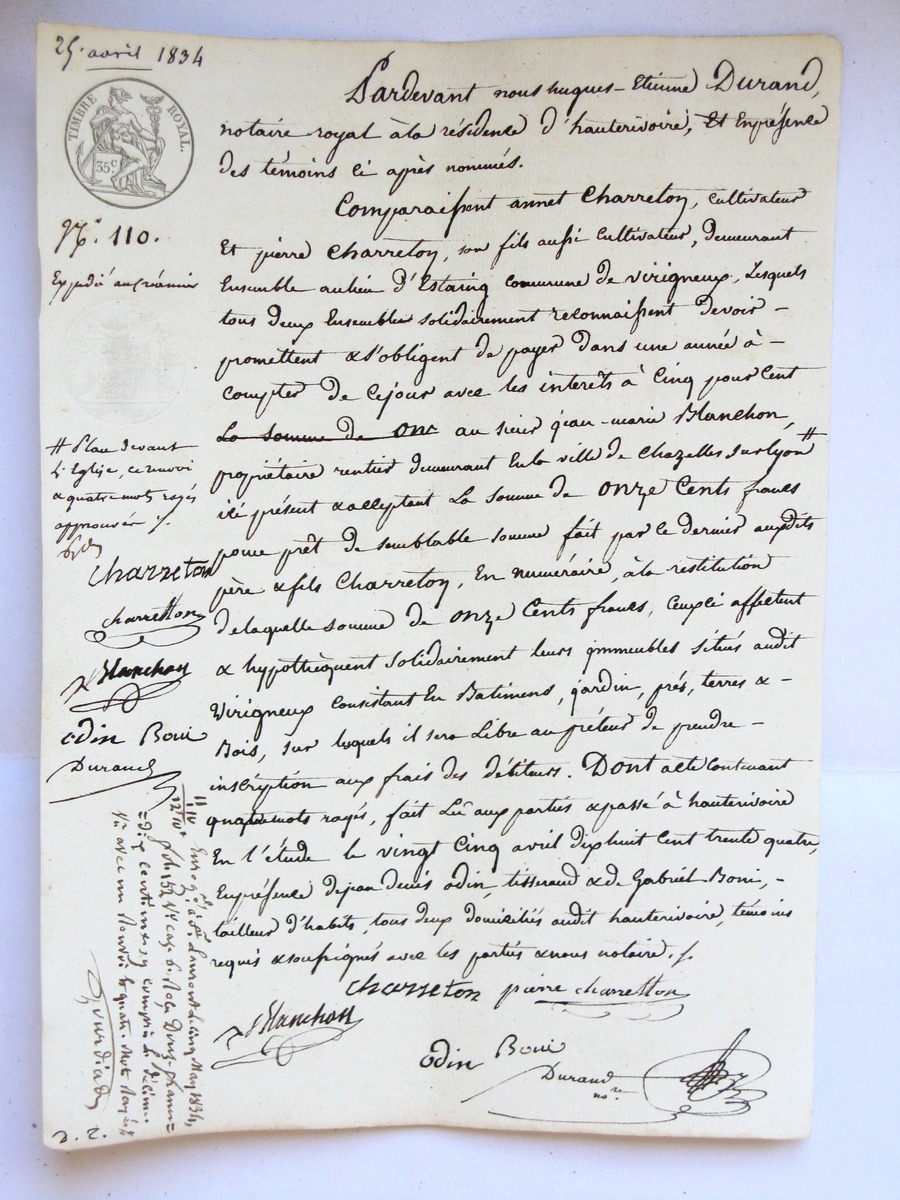 25. avril 1834
TIMBRE ROYAL.
35 c
N.° 110.
Expédié au créancier
Pardevant nous hugues-Etienne Durand,
notaire royal à la résidence d'hauterivoire, Et Enprésence
des témoins ci après nommés.
Comparaissent annet Charreton, cultivateur
Et pierre Charreton, son fils aussi Cultivateur, demeurant
Ensemble aulieu d'Estaing commune de virigneux, Lesquels
tous deux Ensemble solidairement reconnaissent devoir -
promettent & s'obligent de payer dans une année à -
compter de cejour avec les interêts à Cinq pour Cent
La somme de onc au sieur jean-marie Blanchon,
propriétaire rentier demeurant Enla ville de Chazelles surlyon #
ici présent & acceptant La somme de onze Cents francs
pour prêt de semblable somme fait par ce dernier auxdits
père & fils Charreton, En numéraire, à la restitution
delaquelle somme de onze Cents francs, Ceuxci affectent
& hypothèquent solidairement leurs immeubles situés audit
Virigneux Consistant En Batimens, jardin, prés, terres & -
Bois, sur lesquels il sera Libre au prêteur de prendre -
inscription aux frais des débiteurs. Dont acte Contenant
quatre mots rayés, fait Lû aux parties & passé à hauterivoire
En l'étude le vingt Cinq avril dix huit Cent trente quatre,
Enprésence dejean denis odin, tisserand & de Gabriel Boni, -
tailleur d'habits, tous deux domiciliés audit hauterivoire, témoins
requis & soussignés avec les parties & nous notaire. /.
Charreton pierre charretton
Blanchon
odin Boni
Durand
no.re
# Place devant
L'Eglise, ce renvoi
& quatre mots rayés
approuvés /.
Charreton
charretton
Blanchon
odin Boni
Durand
11 IV
12 IV
Enreg.é à S.t Laurent le cinq May 1834,
f.o 152 V.o case 6. Reçu Douze francs
dix centimes y compris le décime